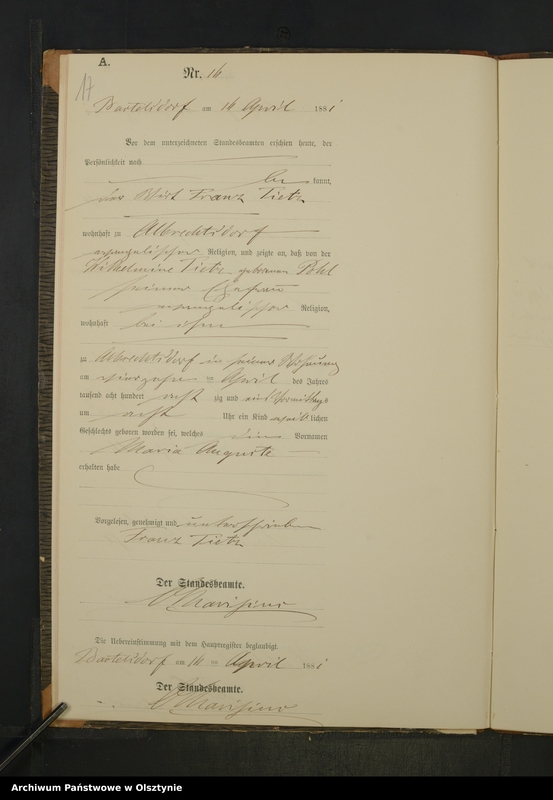 A.
17
Nr. 16
Bartelsdorf am 16 April 1881
Vor dem unterzeichneten Standesbeamten erschien heute, der
Persönlichkeit nach
be kannt,
der Wirt Franz Tietz
wohnhaft zu Albrechtsdorf
evangelischer Religion, und zeigte an, daß von der
Wilhelmine Tietz geborenen Pohl
seiner Ehefrau
evangelischer Religion,
wohnhaft bei ihm
zu Albrechtsdorf in seiner Wohnung
am vierzehn ten April des Jahres
tausend acht hundert acht zig und eins Vormittags
um acht Uhr ein Kind weib lichen
Geschlechts geboren worden sei, welches die Vornamen
Maria Auguste
erhalten habe
Vorgelesen, genehmigt und unterschrieben
Franz Tietz
Der Standesbeamte.
Die Uebereinstimmung mit dem Hauptregister beglaubigt.
Bartelsdorf am 16 ten April 1881
Der Standesbeamte.
Archiwum Państwowe w Olsztynie